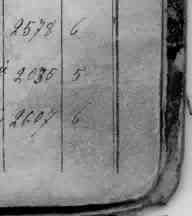 2578 6
2036 5
2607 6